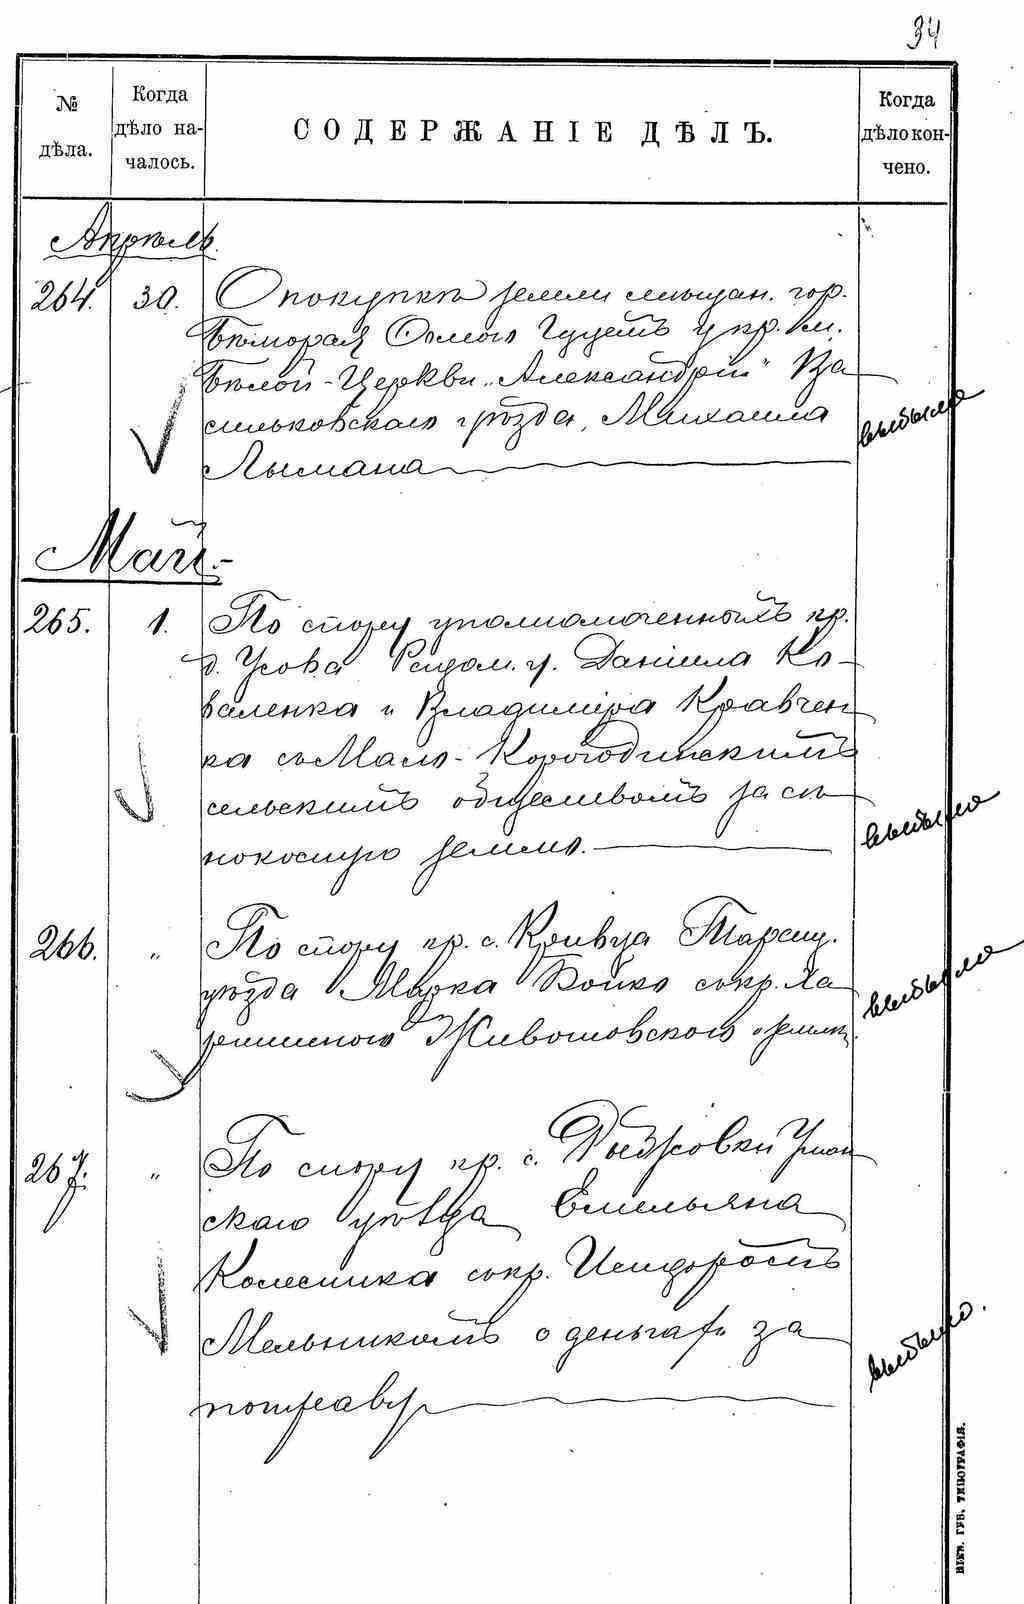 34
№ дѣла.
Когда дѣло на-
чалось.
СОДЕРЖАНІЕ ДѢЛЪ.
Когда дѣло кон-
чено.
Апрѣль.
264. 30. О покупкѣ земли мѣщан. гор.
у кр. м.
Бѣлой-Церкви „Александрія" Ва
сильковскаго уѣзда, Михаила
Лымана
выбыло
Май.-
265. 1. По спору уполномоченныхъ кр.
д. Усова Радом. у. Даніила Ко-
валенка и Владиміра Кравчен
ка съ Мало-Корогодинскимъ
сельскимъ обществомъ за сѣ
нокосную землю.
выбыло
266. „ По спору кр. с. Кривца Таращ.
уѣзда Марка Бойко съ кр. Ха
Животовскаго о земли
выбыло
267. „ По спору кр. с. Рыжовки Уман
скаго уѣзда Емельяна
Колесника съ кр. Исидоромъ
Мельникомъ о деньгахъ за
потраву
выбыло.
ВЪ КІ. ГУБ. ТИПОГРАФІЯ.